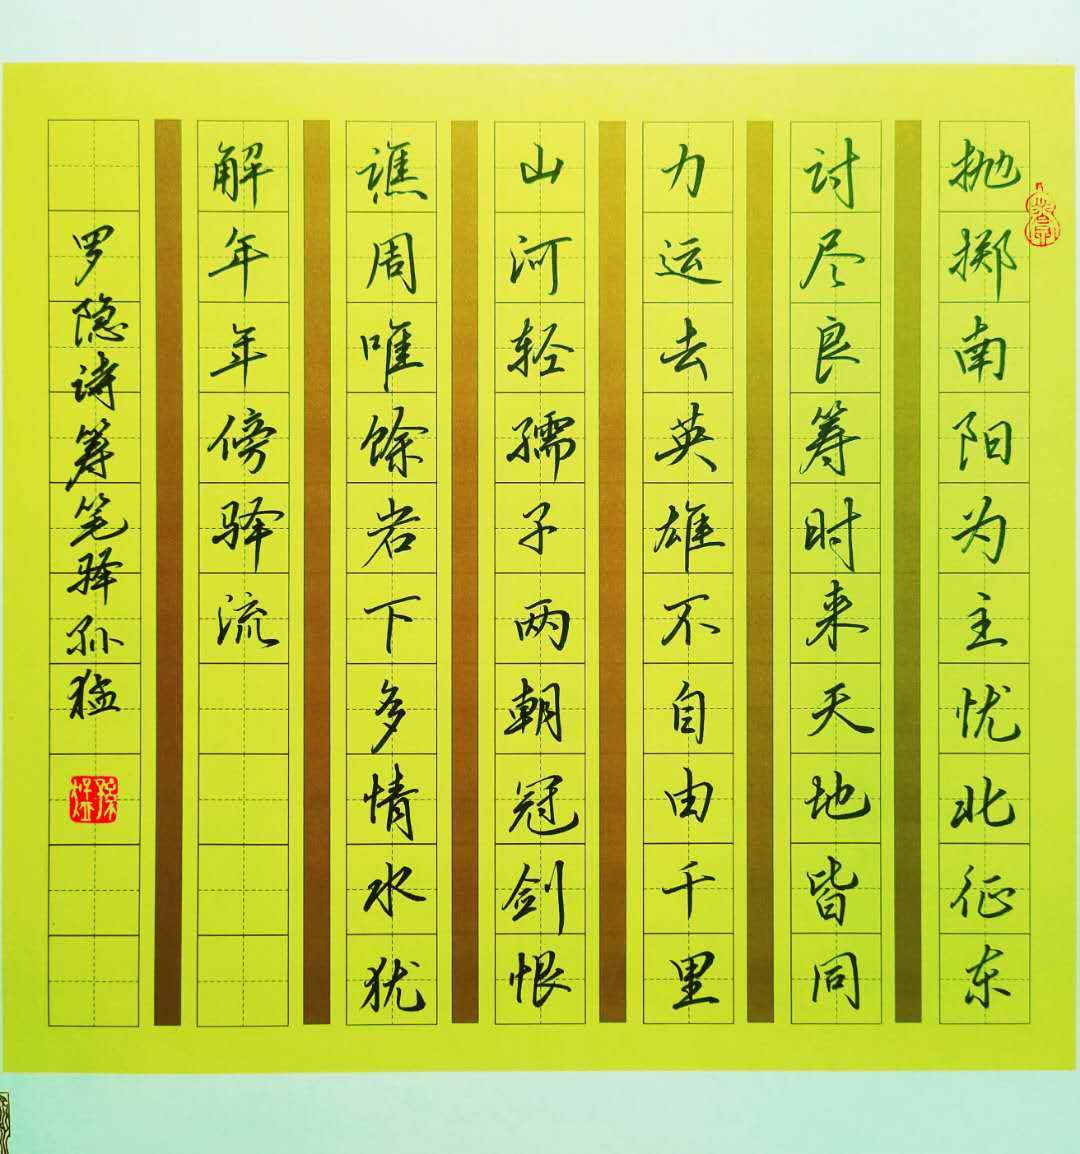 抛掷南阳为主忧北征东
讨尽良筹时来天地皆同
力运去英雄不自由千里
山河轻孺子两朝冠剑恨
谯周唯馀岩下多情水犹
解年年傍驿流
罗隐诗筹笔驿孙猛